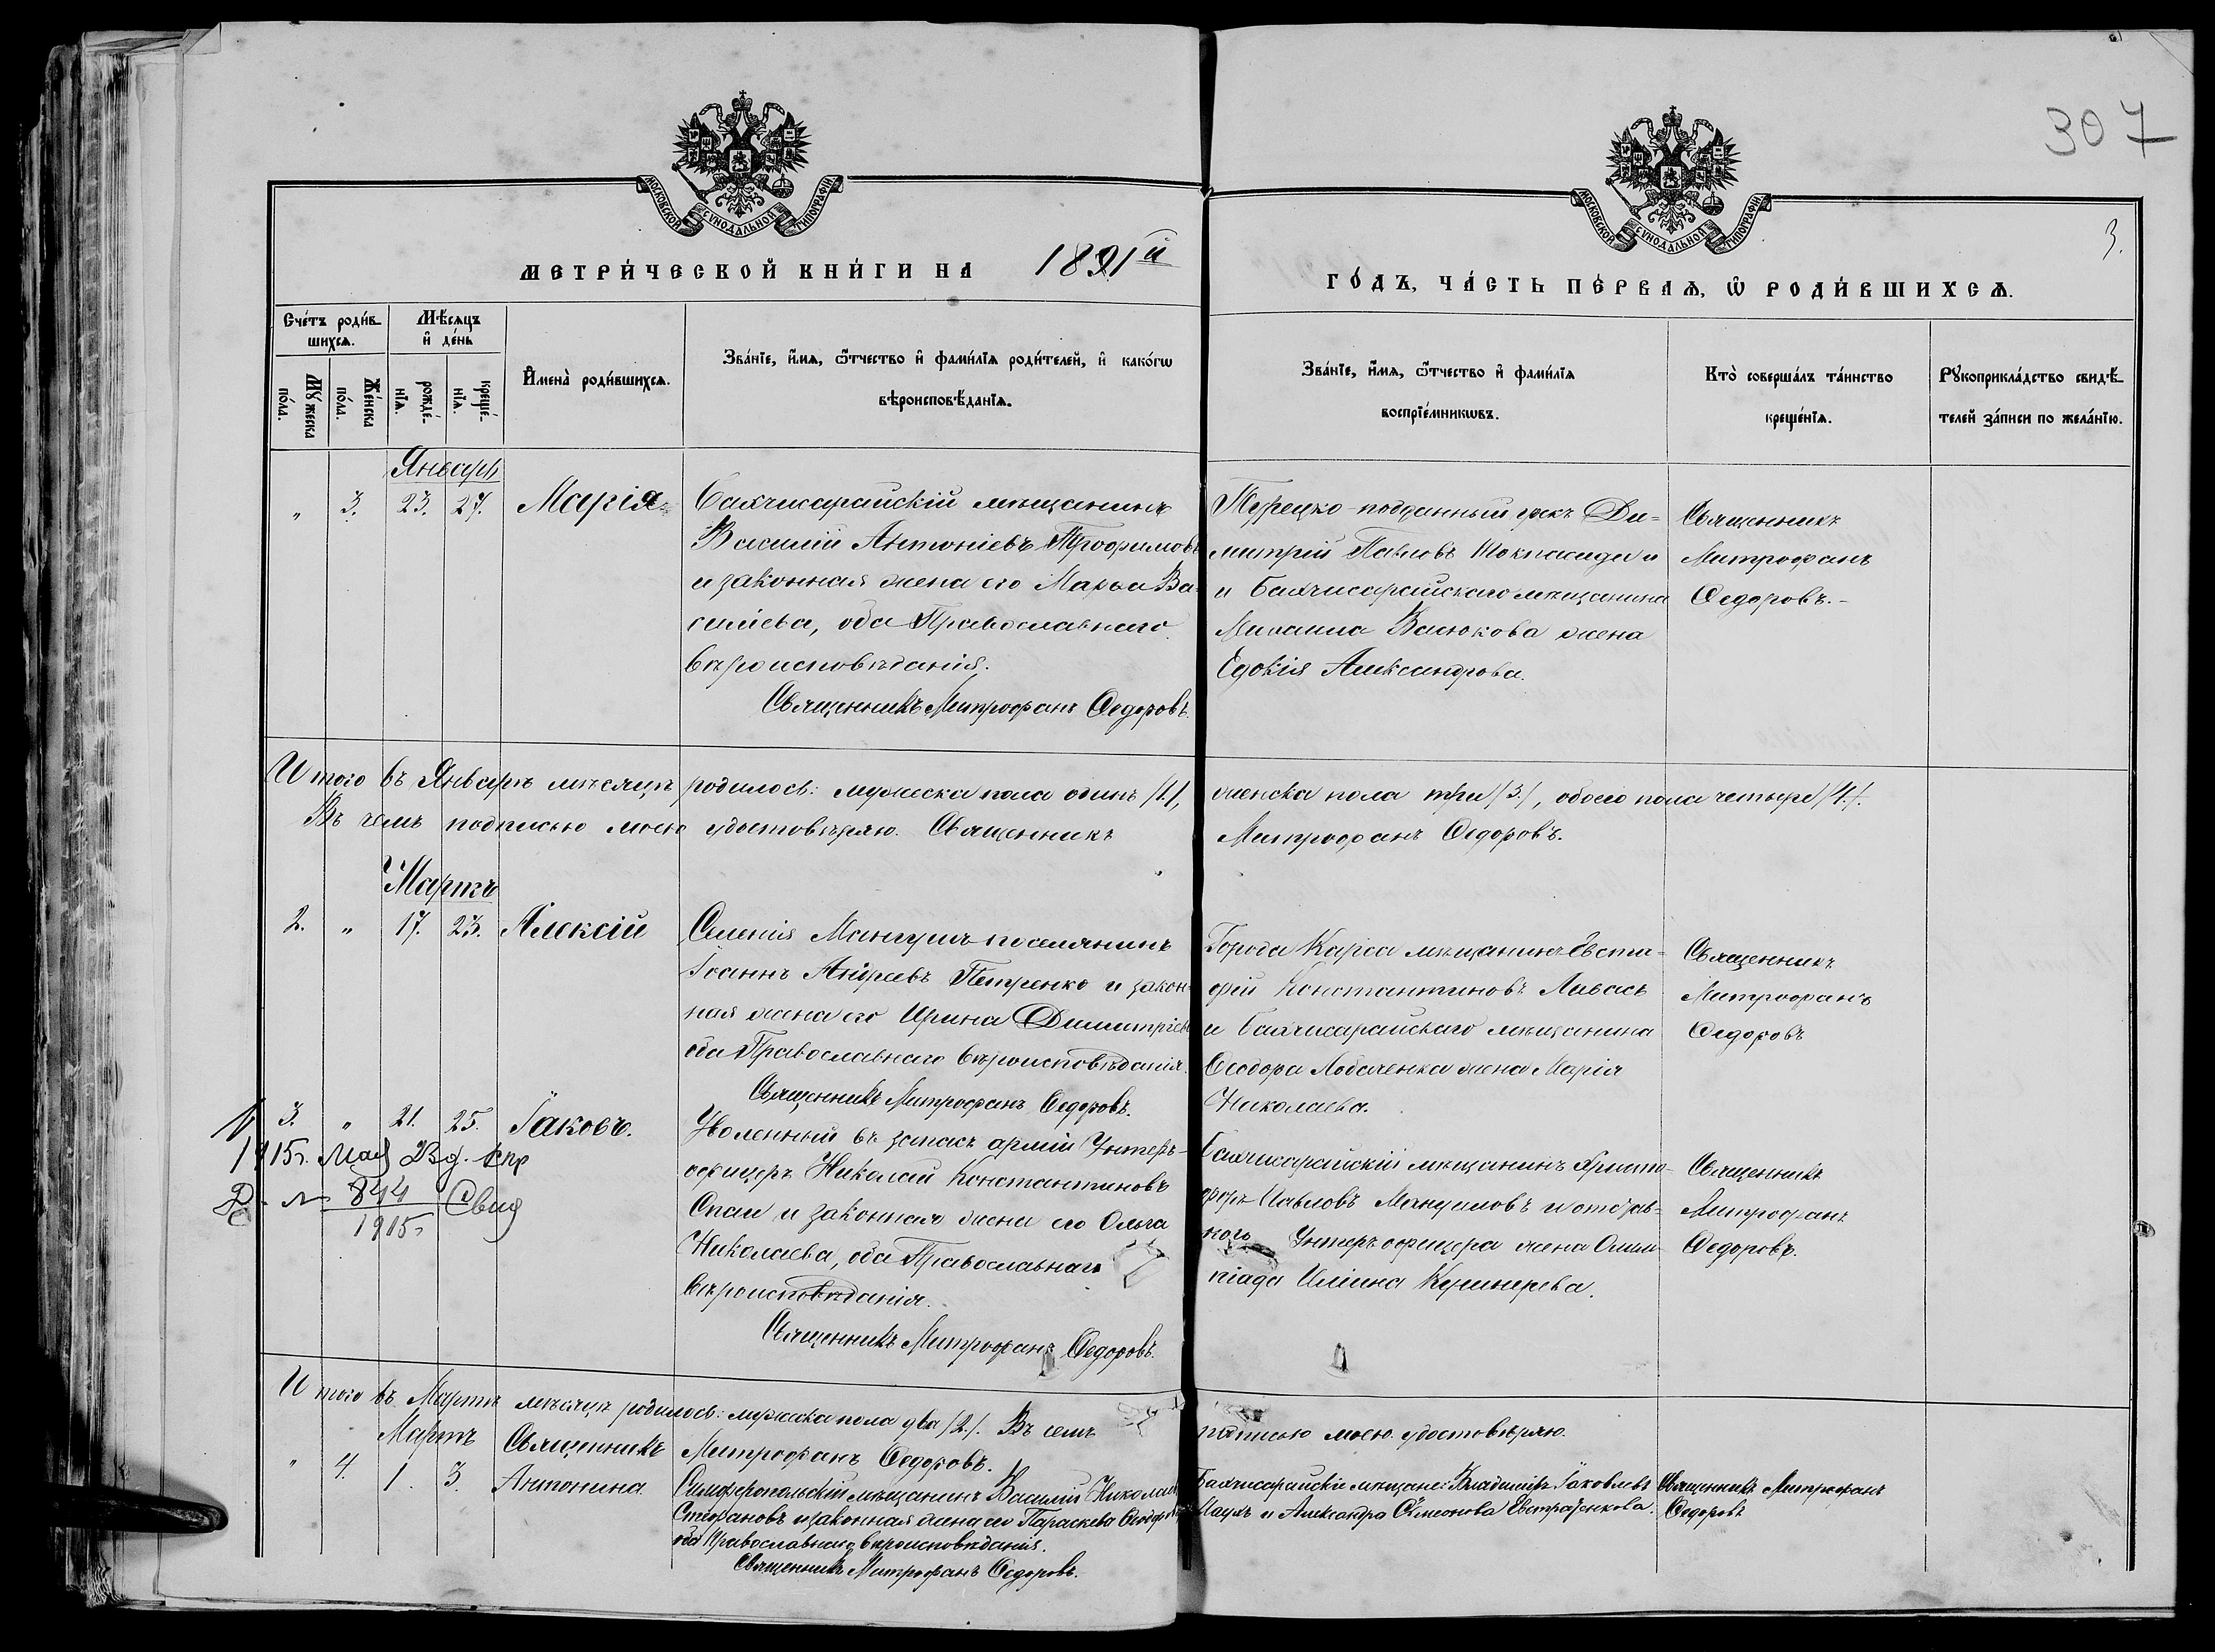 307
3.
МОСКОВСКОЙ СѴНОДАЛЬНОЙ ТИПОГРАФІИ
МОСКОВСКОЙ СѴНОДАЛЬНОЙ ТИПОГРАФІИ
МЕТРИ́ЧЕСКОЙ КНИ́ГИ НА 1891й
ГО́ДЪ, ЧА́СТЬ ПЕ́РВАѦ, Ѡ РОДИ́ВШИХСѦ.
Сче́тъ роди́в-
шихсѧ.
Мꙋжеска по́ла.
Же́нска по́ла.
Мѣ́сѧцъ
и҆ де́нь
рожде́-
нїѧ.
креще́-
нїѧ.
И҆мена̀ роди́вшихсѧ.
Зва́нїе, и҆́мѧ, ѻ҆́тчество и҆ фами́лїѧ роди́телей, и҆ како́гѡ
вѣроисповѣ́данїѧ.
Зва́нїе, и҆́мѧ, ѻ҆́тчество и҆ фами́лїѧ
воспрїе́мникѡвъ.
Кто̀ соверша́лъ та́инство
креще́нїѧ.
Рꙋкоприкла́дство свидѣ́-
телей за́писи по жела́нїю.
Январь
" 3. 23. 27. Марія
Бахчисарайскій мѣщанинъ
Василій Антоніевъ Трофимовъ
и законная жена его Марья Ва-
силіева, оба Православнаго
вѣроисповѣданія.
Священникъ Митрофанъ Ѳедоровъ.
Турецко-подданный грекъ Ди-
митрій Павловъ
и Бахчисарайскаго мѣщанина
Михаила Васюкова жена
Едокія Александрова.
Священникъ
Митрофанъ
Ѳедоровъ.-
Итого въ Январѣ мѣсяцѣ родилось: мужеска пола одинъ /1./, женска пола три /3./, обоего пола четыре /4./.
Въ чемъ подписью моею удостовѣряю. Священникъ Митрофанъ Ѳедоровъ.
Мартъ
2. " 17. 23. Алексій
Селенія Мангушъ поселянинъ
Іоаннъ Андреевъ Петренко и закон-
ная жена его Ирина Димитріева
оба Православнаго вѣроисповѣданія.
Священникъ Митрофанъ Ѳедоровъ.
Города Карса мѣщанинъ Евста-
фій Константиновъ Ливасъ
и Бахчисарайскаго мѣщанина
Ѳеодора Лобаченка жена Марія
Николаева.
Священникъ
Митрофанъ
Ѳедоровъ
3. " 21. 25. Іаковъ.
1915г. Мая 23 д.
№ 844
1915г
Свид
Уволенный въ запасъ арміи Унтеръ-
офицеръ Николай Константиновъ
Спаи и законная жена его Ольга
Николаева, оба Православнаго
вѣроисповѣданія.
Священникъ Митрофанъ Ѳедоровъ.
Бахчисарайскій мѣщанинъ Христо-
форъ Павловъ Мануиловъ и отстав-
ного Унтеръ офицера жена Олим-
піада Иліина
Священникъ
Митрофанъ
Ѳедоровъ.
Итого въ Мартѣ мѣсяцѣ родилось: мужеска пола два /2./. Въ чемъ подписью моею удостовѣряю.
Священникъ Митрофанъ Ѳедоровъ.
Мартъ
" 4. 1. 3. Антонина
Симферопольскій мѣщанинъ Василій Николаевъ
Стефановъ и законная жена его Параскева
оба Православнаго вѣроисповѣданія.
Священникъ Митрофанъ Ѳедоровъ.
Бахчисарайскіе мѣщане: Владиміръ Іаковлевъ
и Александра Сѵмеонова Евстратенкова.
Священникъ Митрофанъ
Ѳедоровъ